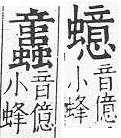 音億
小蜂
音億
小蜂